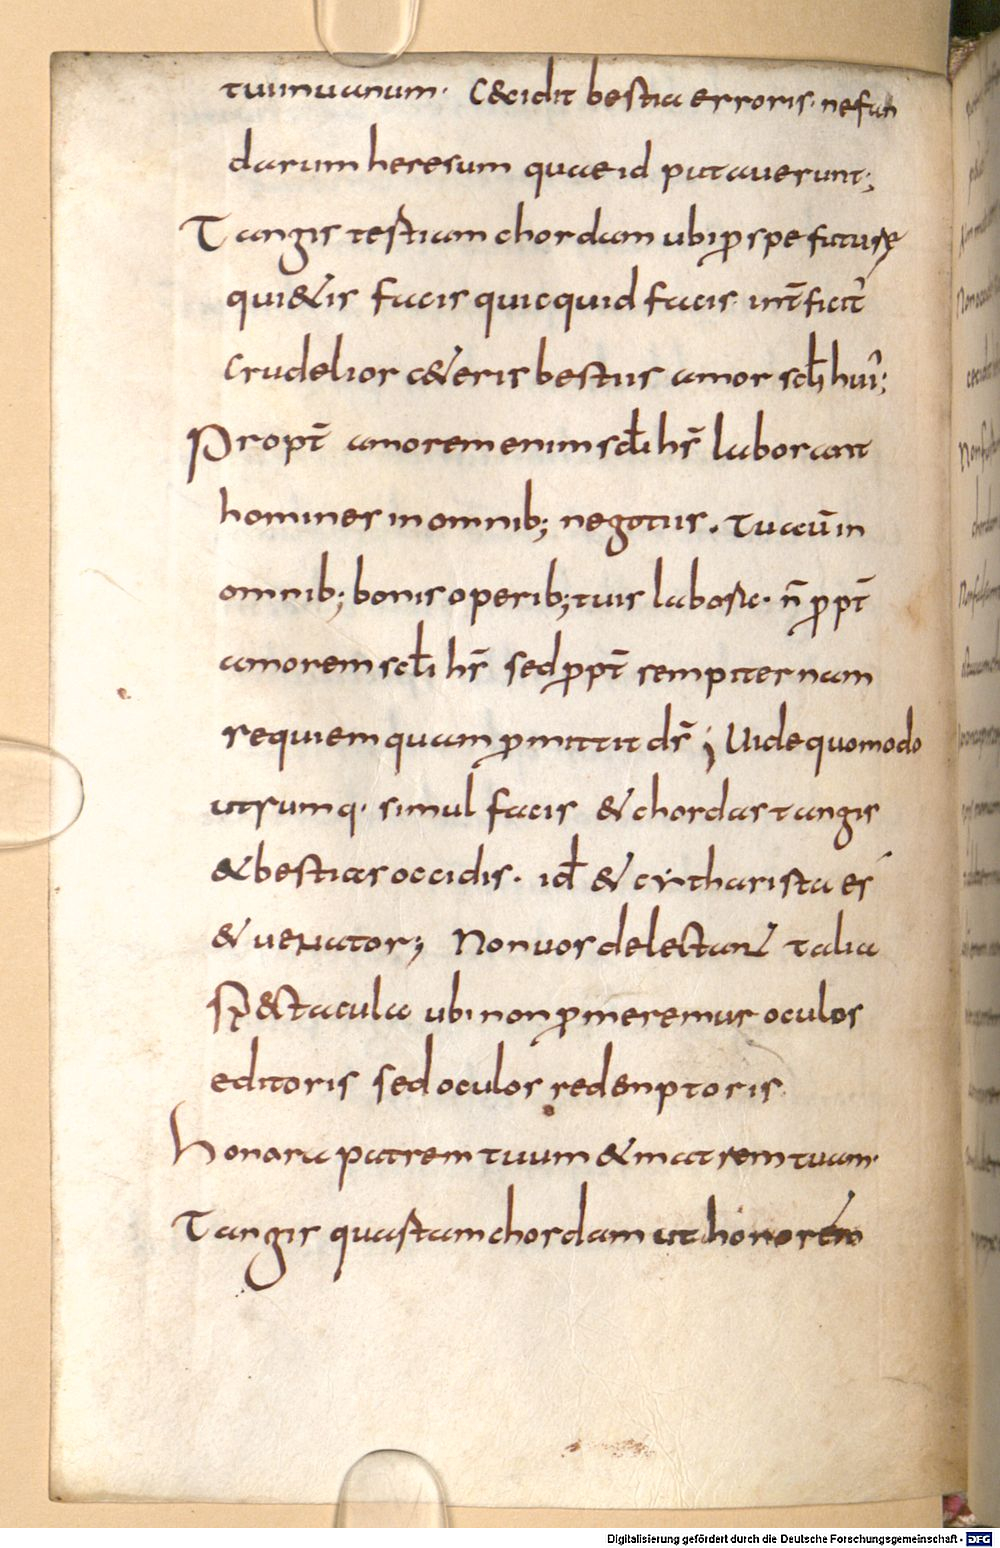 tui in uanum. C&cidit bestia erroris. nefan
darum heresum quae id putauerunt;
Tangis tertiam chordam ubi ꝓ spe futurę
qui&is facis quicquid facis. int̄ficit̉
crudelior c&eris bestiis amor sc̄ƚi hui᾽;
Propt̄ amorem enim sc̄ƚi hs̄ laborant
homines in omnib; negotiis. Tu aūt in
omnib; bonis operib; tuis labora. n̄ ꝓpt̄
amorem sc̄ƚi hs̄ sed ꝓpt̄ sempiternam
requiem quam ꝓmittit ds̄; Uide quomodo
utrumq. simul facis & chordas tangis
& bestias occidis. id̄ & cytharista és
& uenator; Non uos delectant talia
sp&tacula ubi non ꝓmeremur oculos
editoris sed oculos redemptoris.
Honora patrem tuum & matrem tuam.
Tangis quartam chordam ut honorem
Digitalisierung gefördert durch die Deutsche Forschungsgemeinschaft - DFG